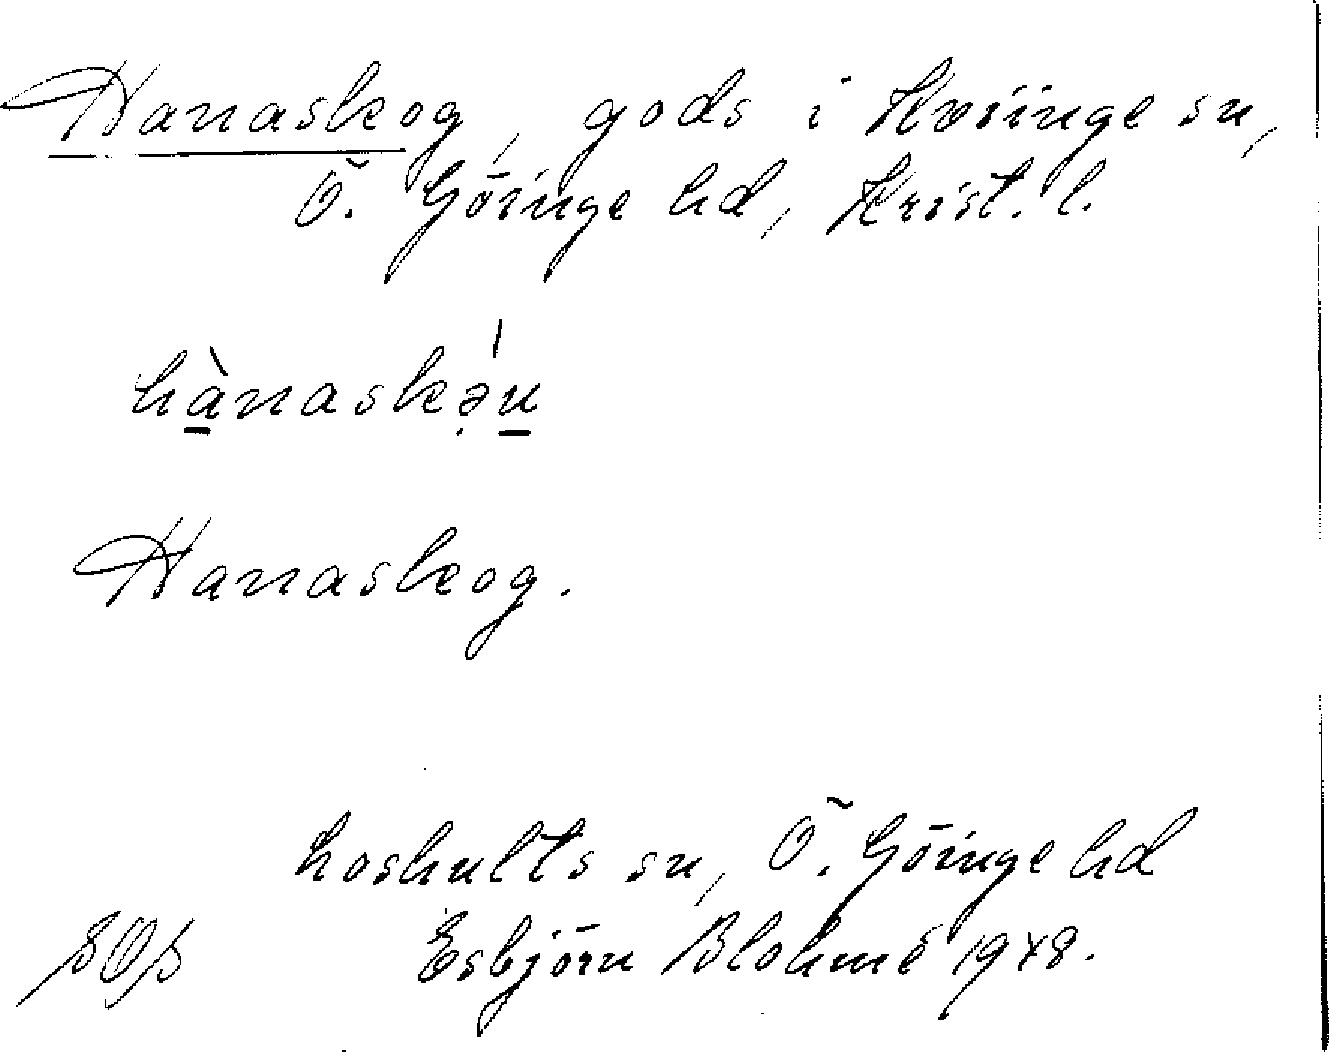 Hanaskog, gods i Kviinge sn,
Ö. Göinge hd, Krist. l.
hànaskə̣́u
Hanaskog.
Loshults sn, Ö. Göinge hd
Esbjörn Blohmé 1948.